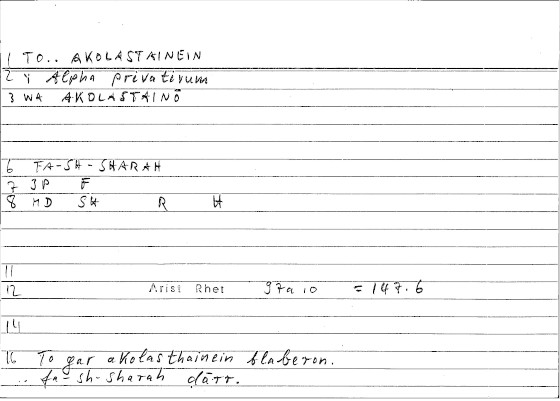 1 TO.. AKOLASTAINEIN
2 Y Alpha privativum
3 WA AKOLASTAINŌ
6 FA-SH-SHARAH
7 3P F
8 MD SH R H
11
12 Arist Rhet 37a10 = 147.6
14
16 To gar akolasthainein blaberon.
.. fa-sh-sharah dārr.